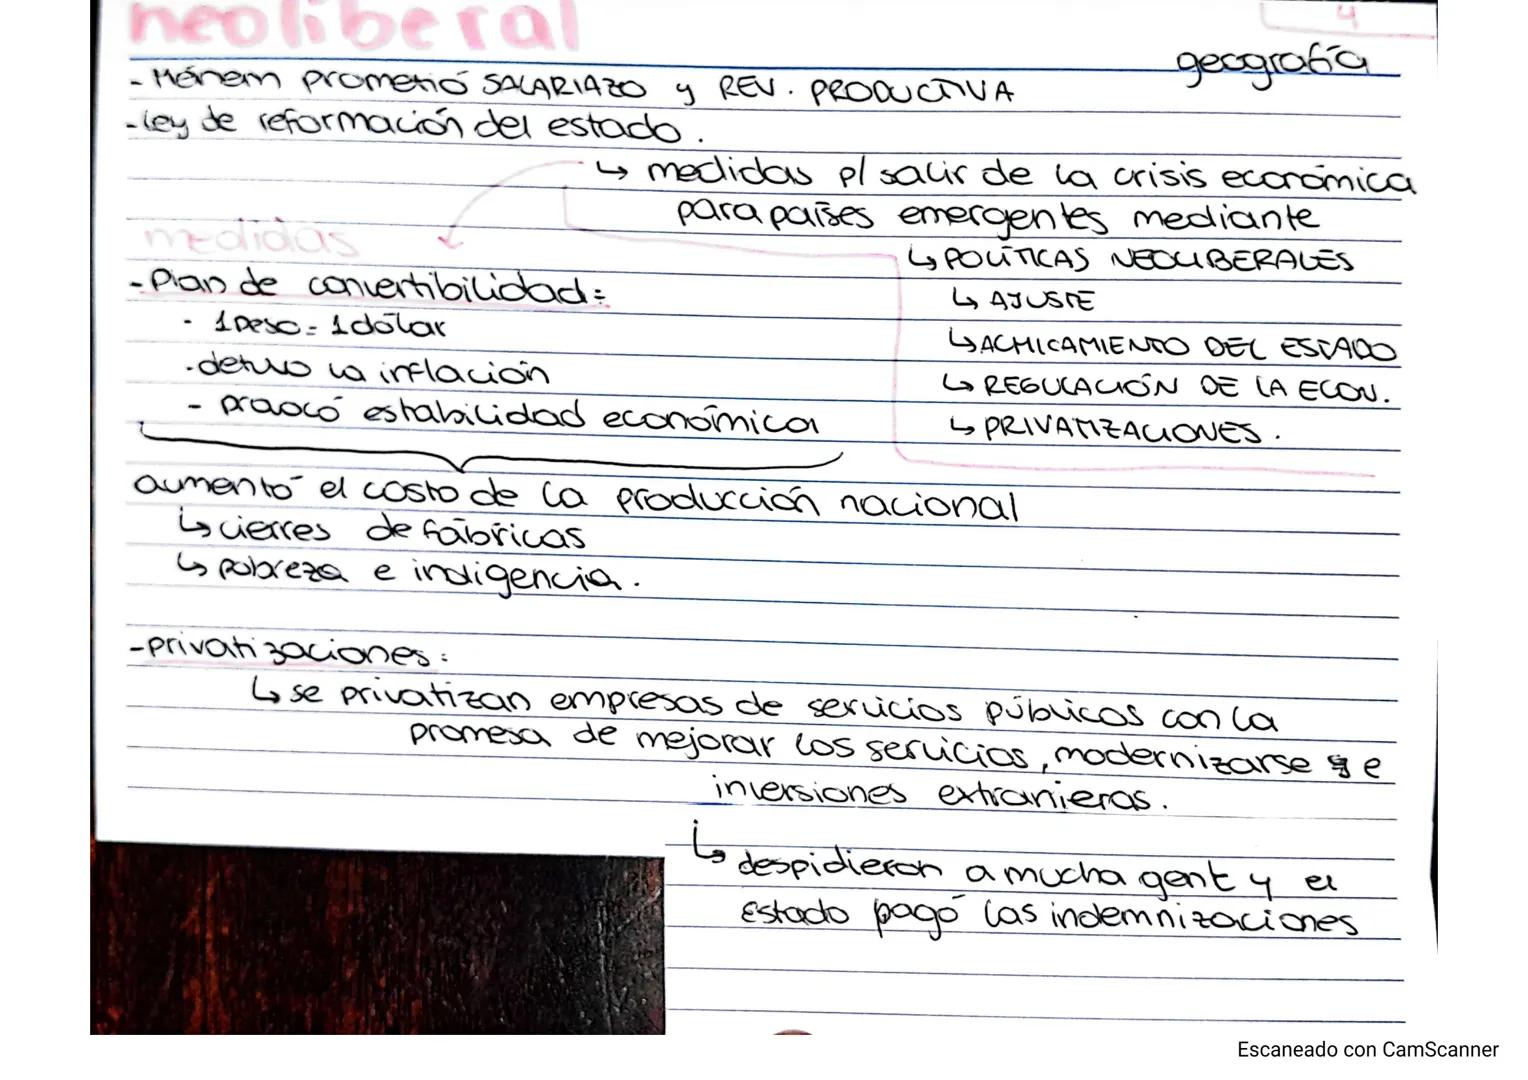 neoliberal
4
geografía
- Ménem prometió SALARIAZO y REV. PRODUCTIVA
- Ley de reformación del estado.
↳ medidas p/ salir de la crisis económica
para países emergentes mediante
↳ POLÍTICAS NEOLIBERALES
↳ AJUSTE
↳ ACHICAMIENTO DEL ESTADO
↳ REGULACIÓN DE LA ECON.
↳ PRIVATIZACIONES.
medidas
- Plan de convertibilidad:
· 1 peso = 1 dólar
· detuvo la inflación
- provocó estabilidad económica
aumentó el costo de la producción nacional
↳ cierres de fábricas
↳ pobreza e indigencia.
- privatizaciones:
↳ se privatizan empresas de servicios públicos con la
promesa de mejorar los servicios, modernizarse e
inversiones extranjeras.
↳ despidieron a mucha gent y el
Estado pagó las indemnizaciones
Escaneado con CamScanner